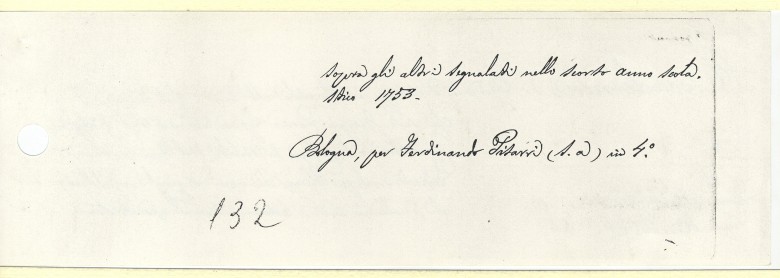 sopra gli altri segnalati nello scorso anno scola-
stico 1753.
Bologna, per Ferdinando Pisarri (s. a) in 4.°
132